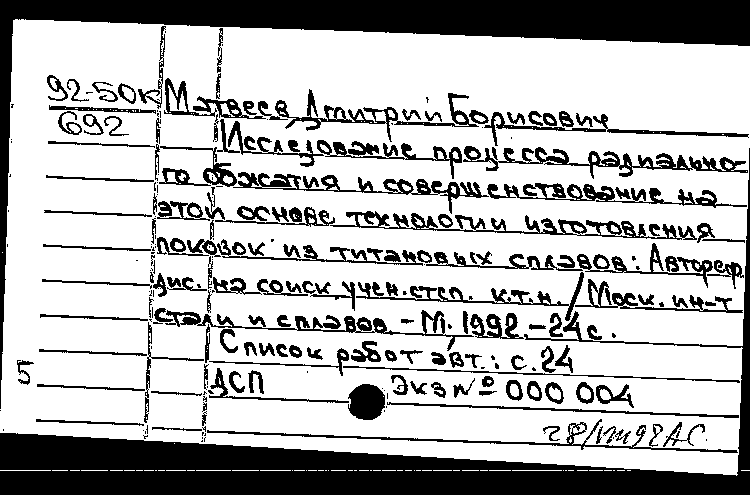 92-50к Матвеев Дмитрий Борисович
692
Исследование процесса радиально-
го обжатия и совершенствование на
этой основе технологии изготовления
поковок из титановых сплавов: Автореф.
дис. на соиск. учен. степ. к.т.н. / Моск. ин-т
стали и сплавов. - М. 1992. - 24 с.
Список работ авт.: с. 24
5
ДСП Экз № 000 004